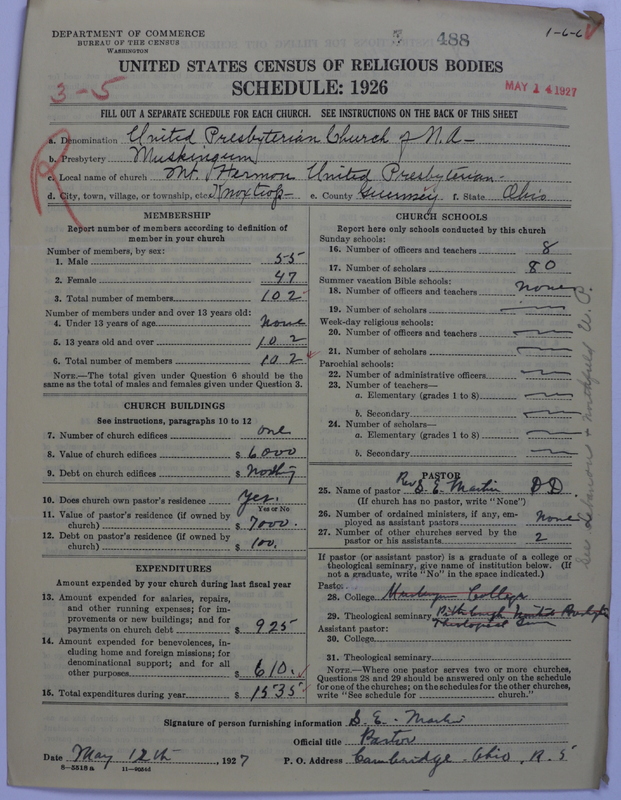 DEPARTMENT OF COMMERCE
BUREAU OF THE CENSUS
WASHINGTON
488
1-6-6
UNITED STATES CENSUS OF RELIGIOUS BODIES
SCHEDULE: 1926
3-5
MAY 14 1927
FILL OUT A SEPARATE SCHEDULE FOR EACH CHURCH. SEE INSTRUCTIONS ON THE BACK OF THIS SHEET
a. Denomination United Presbyterian Church of N.A-
b. Presbytery Muskingum
c. Local name of church Mt. Hermon United Presbyterian-
d. City, town, village, or township, etc. Knox trop- e. County Guernsey f. State Ohio
MEMBERSHIP
Report number of members according to definition of
member in your church
Number of members, by sex:
1. Male 55
2. Female 47
3. Total number of members 102
Number of members under and over 13 years old:
4. Under 13 years of age None
5. 13 years old and over 102
6. Total number of members 102
NOTE.—The total given under Question 6 should be
same as the total of males and females given under Question 3.
CHURCH BUILDINGS
See instructions, paragraphs 10 to 12
7. Number of church edifices one
8. Value of church edifices $ 6,000
9. Debt on church edifices $ Nothing
10. Does church own pastor's residence Yes.
Yes or No
11. Value of pastor's residence (if owned by
church) $ 7000.
12. Debt on pastor's residence (if owned by
church) $ 100.
EXPENDITURES
Amount expended by your church during last fiscal year
13. Amount expended for salaries, repairs,
and other running expenses; for im-
provements or new buildings; and for
payments on church debt $ 925
14. Amount expended for benevolences, in-
cluding home and foreign missions; for
denominational support; and for all
other purposes $ 610.
15. Total expenditures during year $ 1535
CHURCH SCHOOLS
Report here only schools conducted by this church
Sunday schools:
16. Number of officers and teachers 8
17. Number of scholars 80
Summer vacation Bible schools:
18. Number of officers and teachers none
19. Number of scholars
Week-day religious schools:
20. Number of officers and teachers
21. Number of scholars
Parochial schools:
22. Number of administrative officers
23. Number of teachers—
a. Elementary (grades 1 to 8)
b. Secondary
24. Number of scholars—
a. Elementary (grades 1 to 8)
b. Secondary
PASTOR
25. Name of pastor Rev S. E. Martin D.D.
(If church has no pastor, write "None")
26. Number of ordained ministers, if any, em-
ployed as assistant pastors None
27. Number of other churches served by the
pastor or his assistants 2
If pastor (or assistant pastor) is a graduate of a college or
theological seminary, give name of institution below. (If
not a graduate, write "No" in the space indicated.)
Pastor:
28. College College
29. Theological seminary Pittsburgh
Theological Sem
Assistant pastor:
30. College
31. Theological seminary
NOTE.—Where one pastor serves two or more churches,
Questions 28 and 29 should be answered only on the schedule
for one of the churches; on the schedules for the other churches,
write "See schedule for church."
See U. P.
Signature of person furnishing information S. E. Martin
Official title Pastor
Date May 12th, 1927 P. O. Address Cambridge Ohio, R. 5
8-5518a 11-9054d